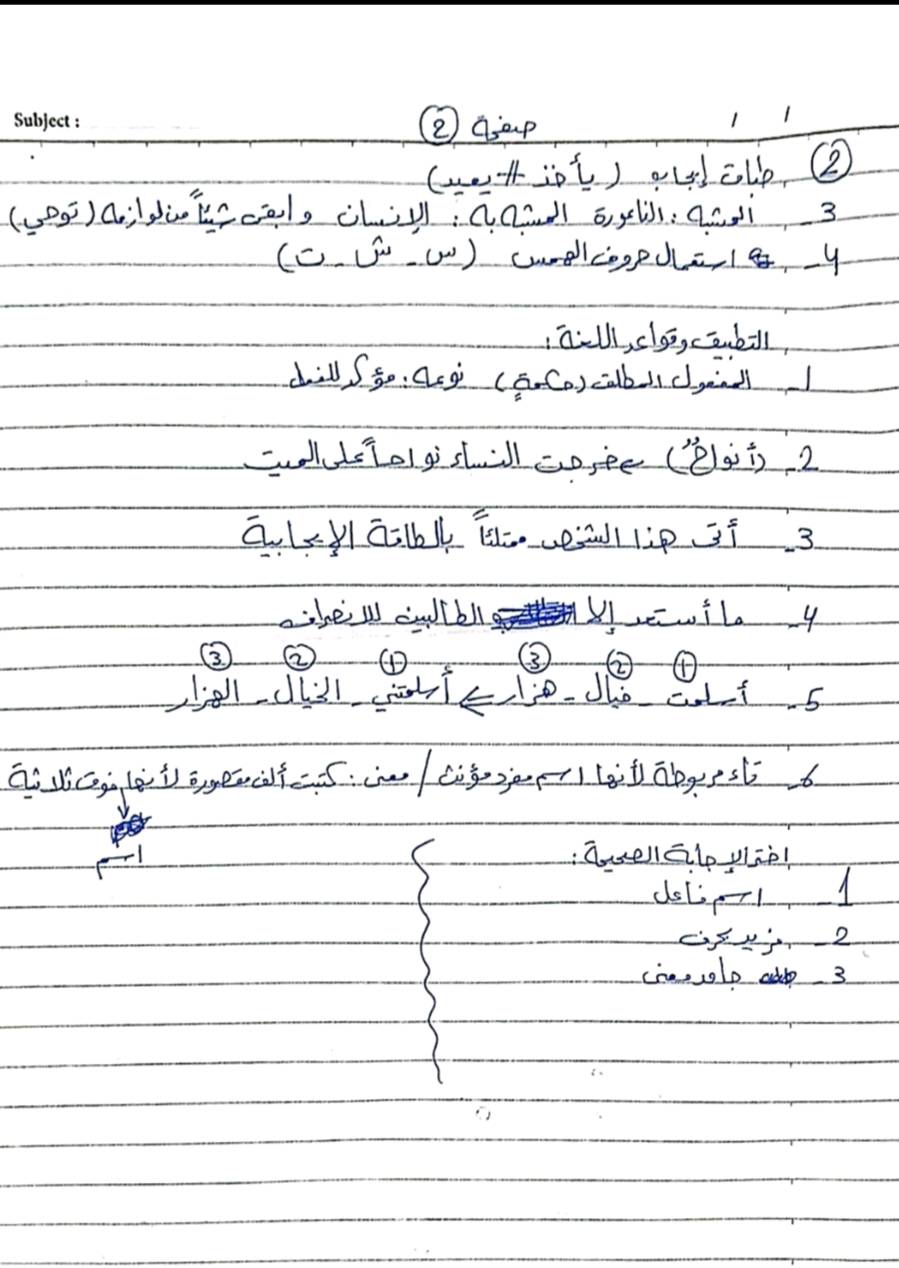 Subject :
صفحة ②
/ /
② طباق إيجاب (يأخذ # يعيد)
3- المشبه: الناعورة المشبه به: الإنسان وابقى شيئاً من لوازمه (توحي)
4- استعمال حروف الهمس (س - ش - ت)
التطبيق وقواعد اللغة:
1- المفعول المطلق (حكمةٍ) نوعه: مؤكد للفعل
2- (أنواحٌ) خرجت النساء نواحاً على الميت
3- أتى هذا الشخص ممتلئاً بالطاقة الإيجابية
4- ما أستعد إلا الطالبين للانصراف
① ② ③ ① ② ③
5- أسلمت - خيال - هزار ← أسلمتني - الخيال - الهزار
6- تاء مربوطة لأنها اسم مفرد مؤنث / معنى: كتبت ألف مقصورة لأنها فوق ثلاثية
اسم
اختر الإجابة الصحيحة:
1- اسم فاعل
2- مزيد بحرف
3- جامد معنى